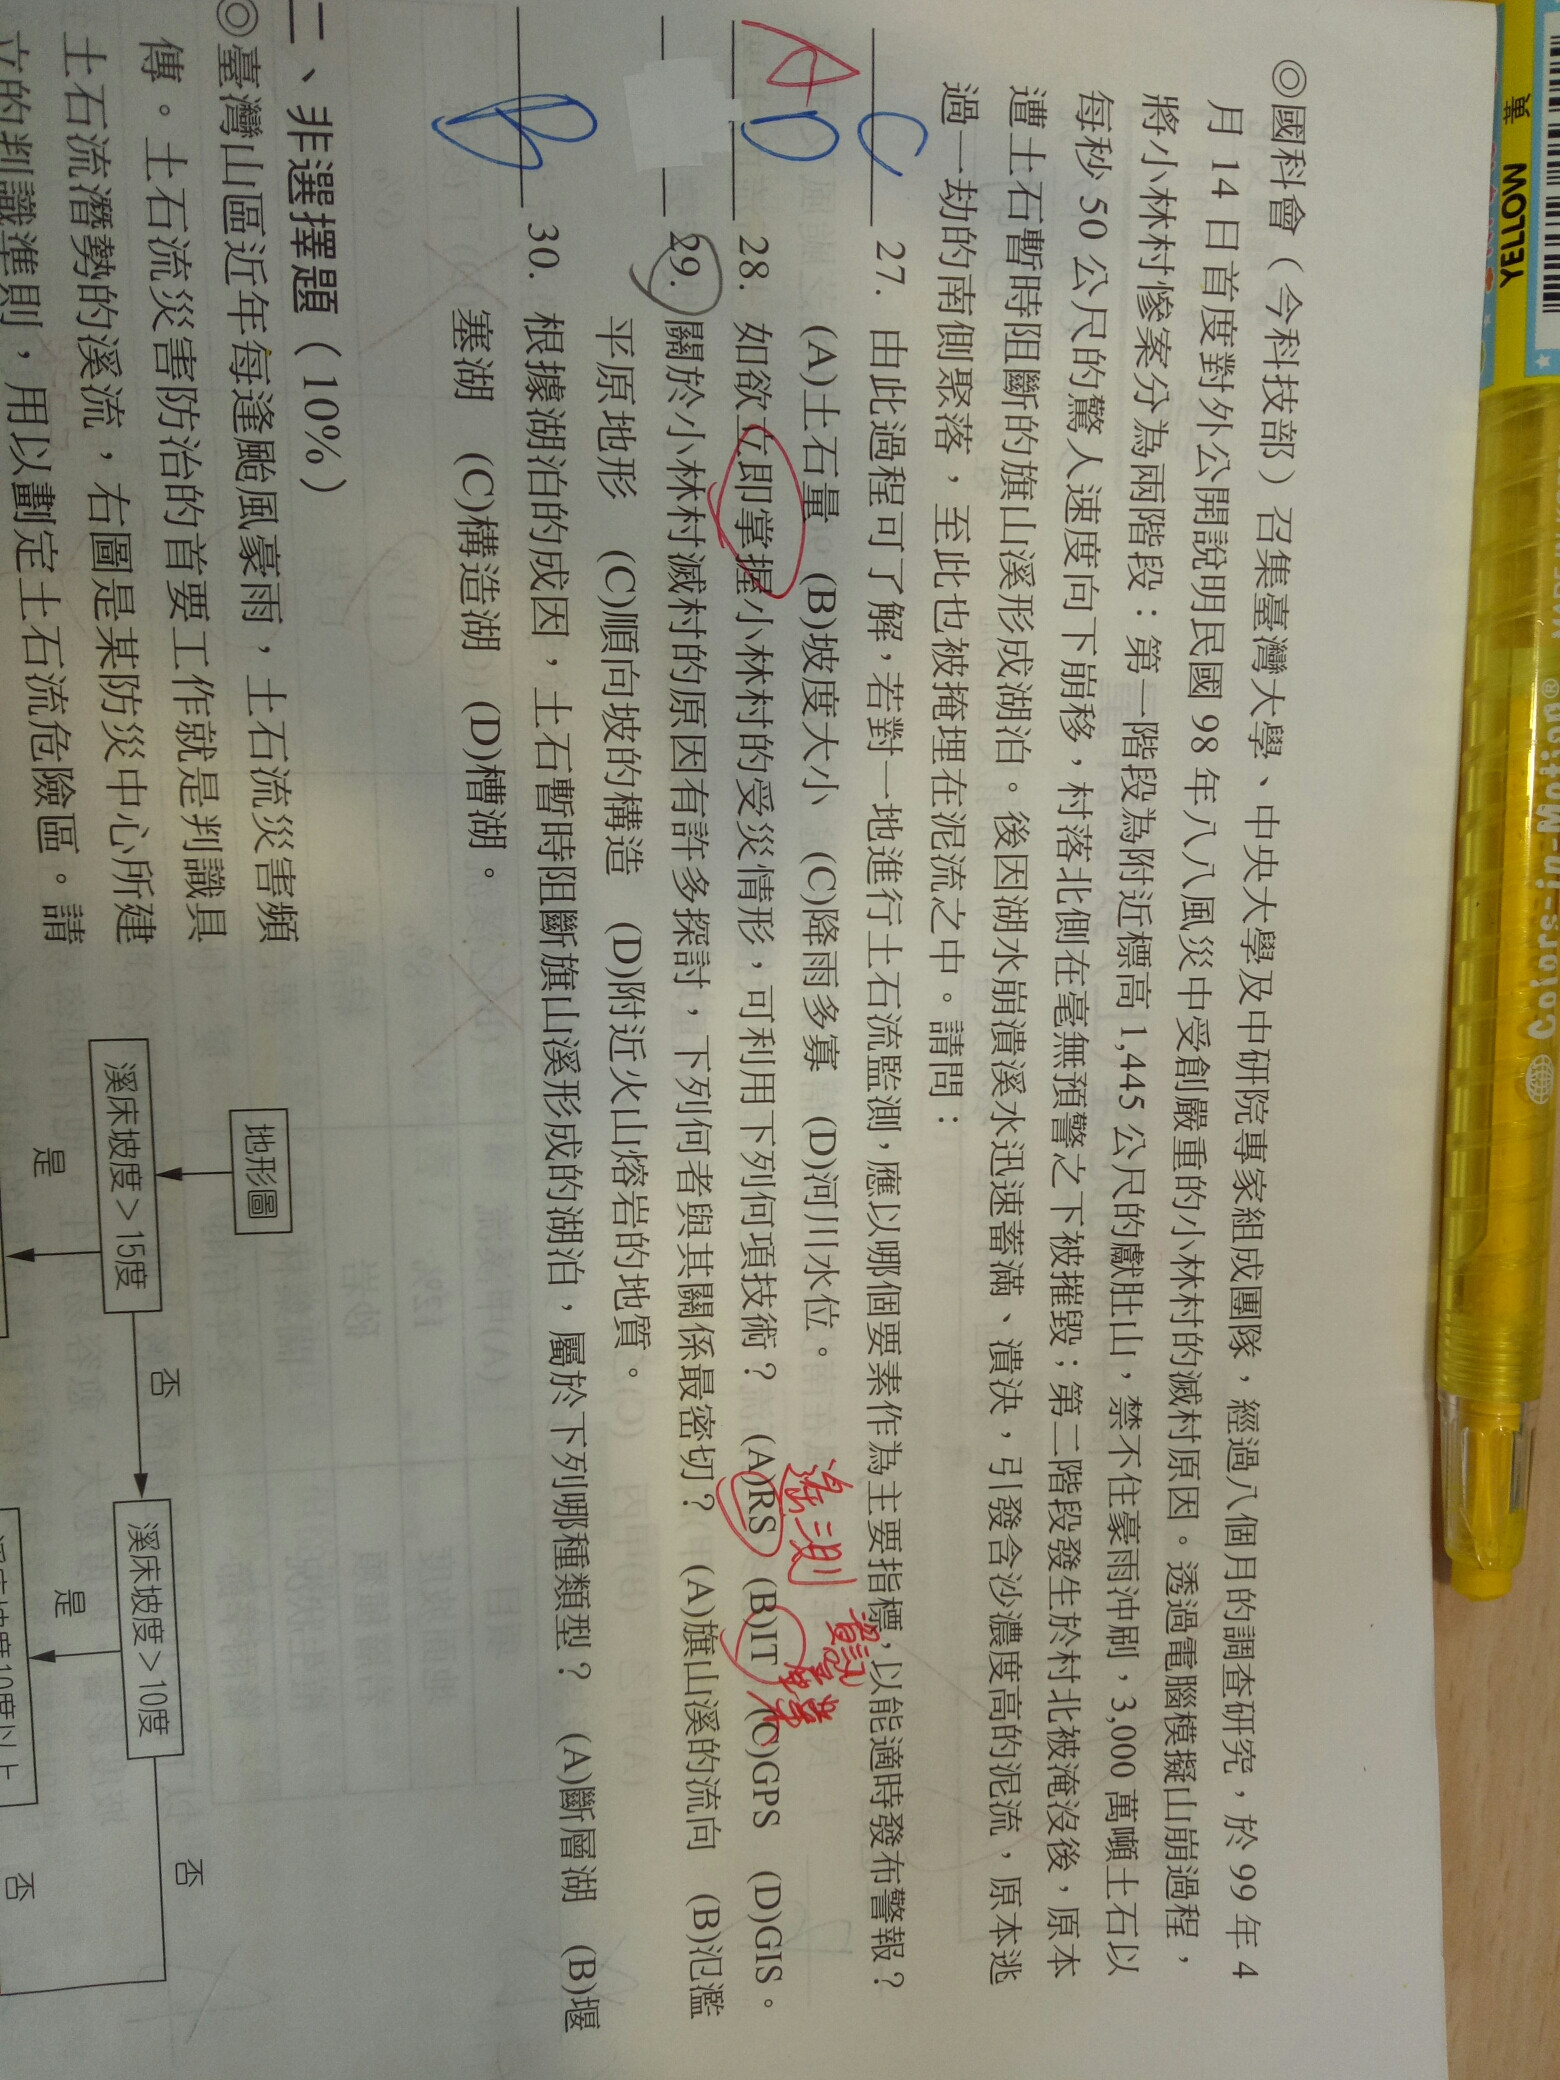 黃 YELLOW
Colors-in-Motion®
◎國科會（今科技部）召集臺灣大學、中央大學及中研院專家組成團隊，經過八個月的調查研究，於 99 年 4
月 14 日首度對外公開說明民國 98 年八八風災中受創嚴重的小林村的滅村原因。透過電腦模擬山崩過程，
將小林村慘案分為兩階段：第一階段為附近標高 1,445 公尺的獻肚山，禁不住豪雨沖刷，3,000 萬噸土石以
每秒 50 公尺的驚人速度向下崩移，村落北側在毫無預警之下被摧毀；第二階段發生於村北被淹沒後，原本
遭土石暫時阻斷的旗山溪形成湖泊。後因湖水崩潰溪水迅速蓄滿、潰決，引發含沙濃度高的泥流，原本逃
過一劫的南側聚落，至此也被掩埋在泥流之中。請問：
C 27. 由此過程可了解，若對一地進行土石流監測，應以哪個要素作為主要指標，以能適時發布警報？
(A)土石量 (B)坡度大小 (C)降雨多寡 (D)河川水位。
遙測 資訊
A D 28. 如欲立即掌握小林村的受災情形，可利用下列何項技術？ (A)RS (B)IT (C)GPS (D)GIS。
29. 關於小林村滅村的原因有許多探討，下列何者與其關係最密切？ (A)旗山溪的流向 (B)氾濫
平原地形 (C)順向坡的構造 (D)附近火山熔岩的地質。
B 30. 根據湖泊的成因，土石暫時阻斷旗山溪形成的湖泊，屬於下列哪種類型？ (A)斷層湖 (B)堰
塞湖 (C)構造湖 (D)槽湖。
二、非選擇題（10%）
◎臺灣山區近年每逢颱風豪雨，土石流災害頻
傳。土石流災害防治的首要工作就是判識具
土石流潛勢的溪流，右圖是某防災中心所建
立的判識準則，用以劃定土石流危險區。請
地形圖
溪床坡度＞15度
否
溪床坡度＞10度
否
是
是
否